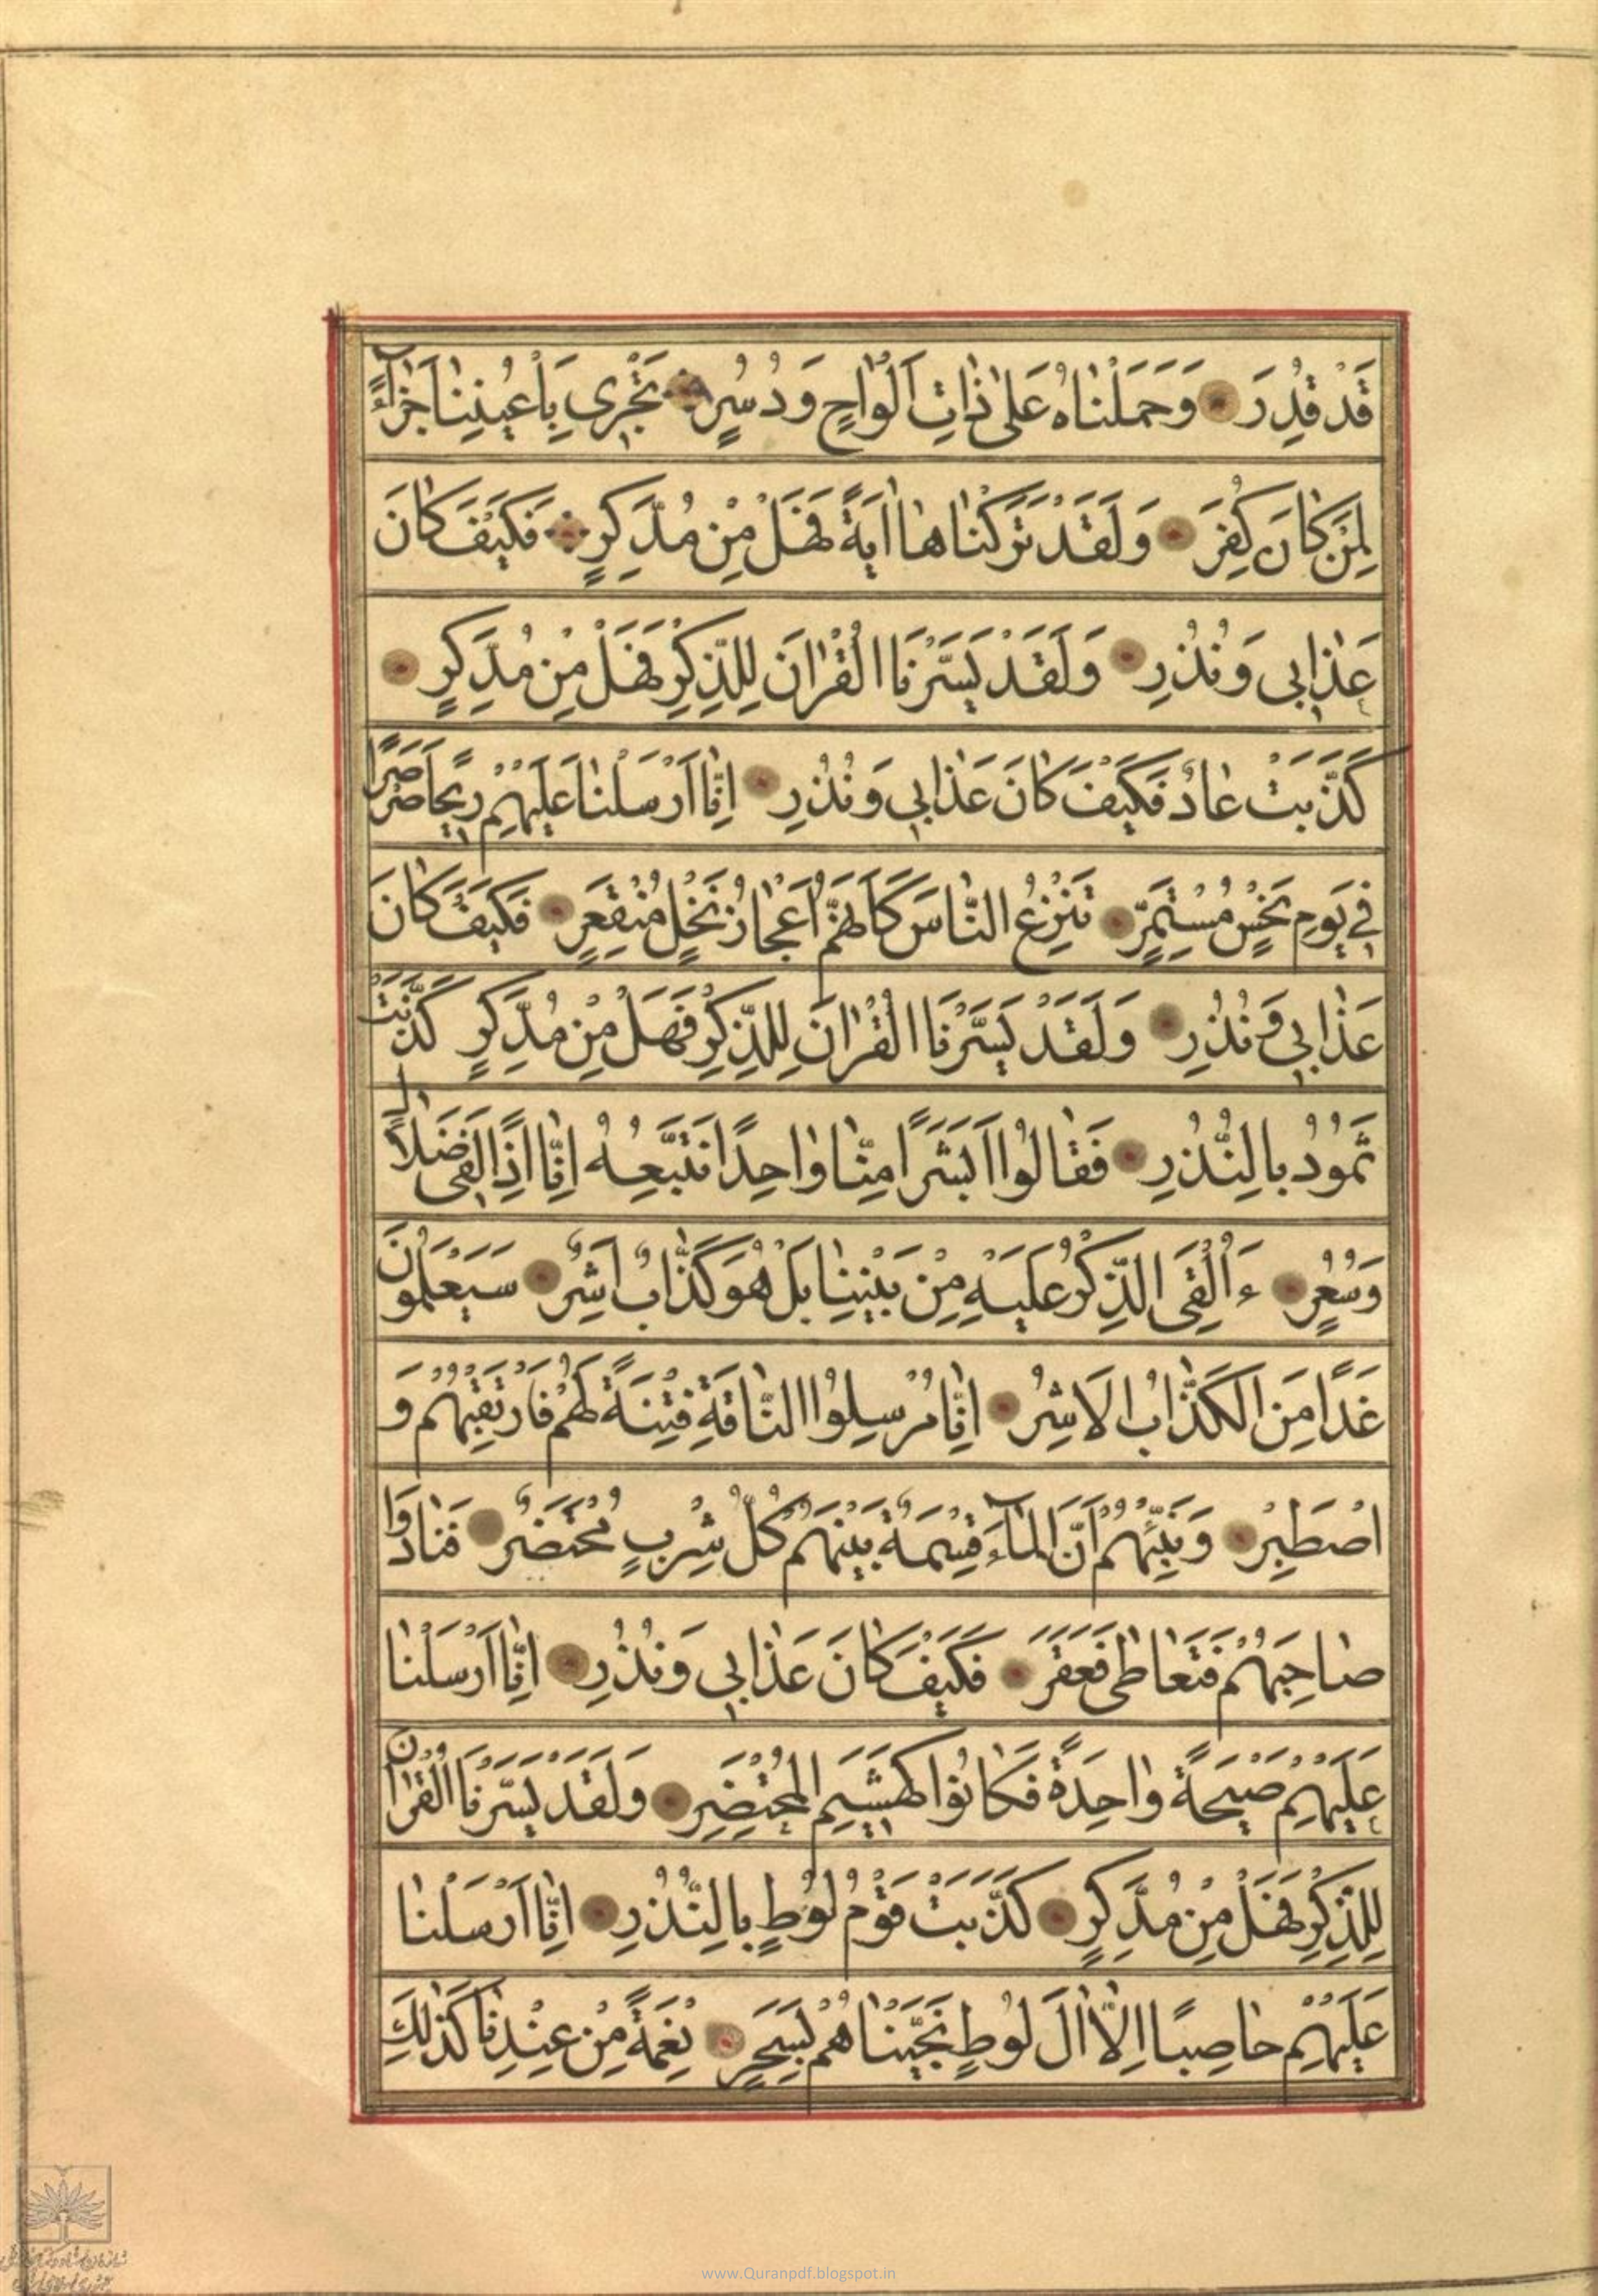 قَدْ قُدِرَ وَحَمَلْنَاهُ عَلىٰ ذٰاتِ اَلْوٰاحٍ وَدُسُرٍ تَجْرِي بِاَعْيُنِنٰا جَزٰاءً
لِمَنْ كٰانَ كُفِرَ وَلَقَدْ تَرَكْنٰاهٰا اٰيَةً فَهَلْ مِنْ مُدَّكِرٍ فَكَيْفَ كٰانَ
عَذٰابِى وَنُذُرِ وَلَقَدْ يَسَّرْنَا الْقُرْاٰنَ لِلذِّكْرِ فَهَلْ مِنْ مُدَّكِرٍ
كَذَّبَتْ عٰادٌ فَكَيْفَ كٰانَ عَذٰابِي وَنُذُرِ اِنّٰا اَرْسَلْنٰا عَلَيْهِمْ رِيحًا صَرْصَرًا
فِي يَوْمِ نَحْسٍ مُسْتَمِرٍّ تَنْزِعُ النّٰاسَ كَاَنَّهُمْ اَعْجٰازُ نَخْلٍ مُنْقَعِرٍ فَكَيْفَ كٰانَ
عَذٰابِي وَنُذُرِ وَلَقَدْ يَسَّرْنَا الْقُرْاٰنَ لِلذِّكْرِ فَهَلْ مِنْ مُدَّكِرٍ كَذَّبَتْ
ثَمُودُ بِالنُّذُرِ فَقٰالُوا اَبَشَرًا مِنّٰا وٰاحِدًا نَتَّبِعُهُ اِنّٰا اِذًا لَفِى ضَلاٰلٍ
وَسُعُرٍ ءَاُلْقِىَ الذِّكْرُ عَلَيْهِ مِنْ بَيْنِنٰا بَلْ هُوَ كَذّٰابٌ اَشِرٌ سَيَعْلَمُونَ
غَدًا مَنِ الْكَذّٰابُ الْاَشِرُ اِنّٰا مُرْسِلُوا النّٰاقَةِ فِتْنَةً لَهُمْ فَارْتَقِبْهُمْ وَ
اصْطَبِرْ وَنَبِّئْهُمْ اَنَّ الْمٰاءَ قِسْمَةٌ بَيْنَهُمْ كُلُّ شِرْبٍ مُحْتَضَرٌ فَنٰادَوْا
صٰاحِبَهُمْ فَتَعٰاطىٰ فَعَقَرَ فَكَيْفَ كٰانَ عَذٰابِي وَنُذُرِ اِنّٰا اَرْسَلْنٰا
عَلَيْهِمْ صَيْحَةً وٰاحِدَةً فَكٰانُوا كَهَشِيمِ الْمُحْتَضِرِ وَلَقَدْ يَسَّرْنَا الْقُرْاٰنَ
لِلذِّكْرِ فَهَلْ مِنْ مُدَّكِرٍ كَذَّبَتْ قَوْمُ لُوطٍ بِالنُّذُرِ اِنّٰا اَرْسَلْنٰا
عَلَيْهِمْ حٰاصِبًا اِلّٰا اٰلَ لُوطٍ نَجَّيْنٰاهُمْ بِسَحَرٍ نِعْمَةً مِنْ عِنْدِنٰا كَذٰلِكَ
www.Quranpdf.blogspot.in